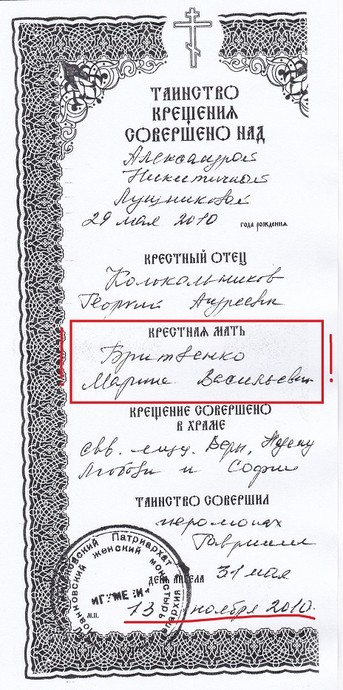 ТАИНСТВО
КРЕЩЕНИЯ
СОВЕРШЕНО НАД
Александрой
Никитичной
Лущиковой
29 мая 2010 года рождения
КРЕСТНЫЙ ОТЕЦ
Колокольников
Георгий Андреевич
КРЕСТНАЯ МАТЬ
Бритвенко
Марина Васильевн
!
КРЕЩЕНИЕ СОВЕРШЕНО
В ХРАМЕ
свв. мцц. Веры, Надежды
Любови и Софии
ТАИНСТВО СОВЕРШИЛ
иеромонах
Гавриил
ДЕНЬ АНГЕЛА 31 мая
М.П. 13 ноября 2010.
Патриархат
женский монастырь
ИГУМЕНИ